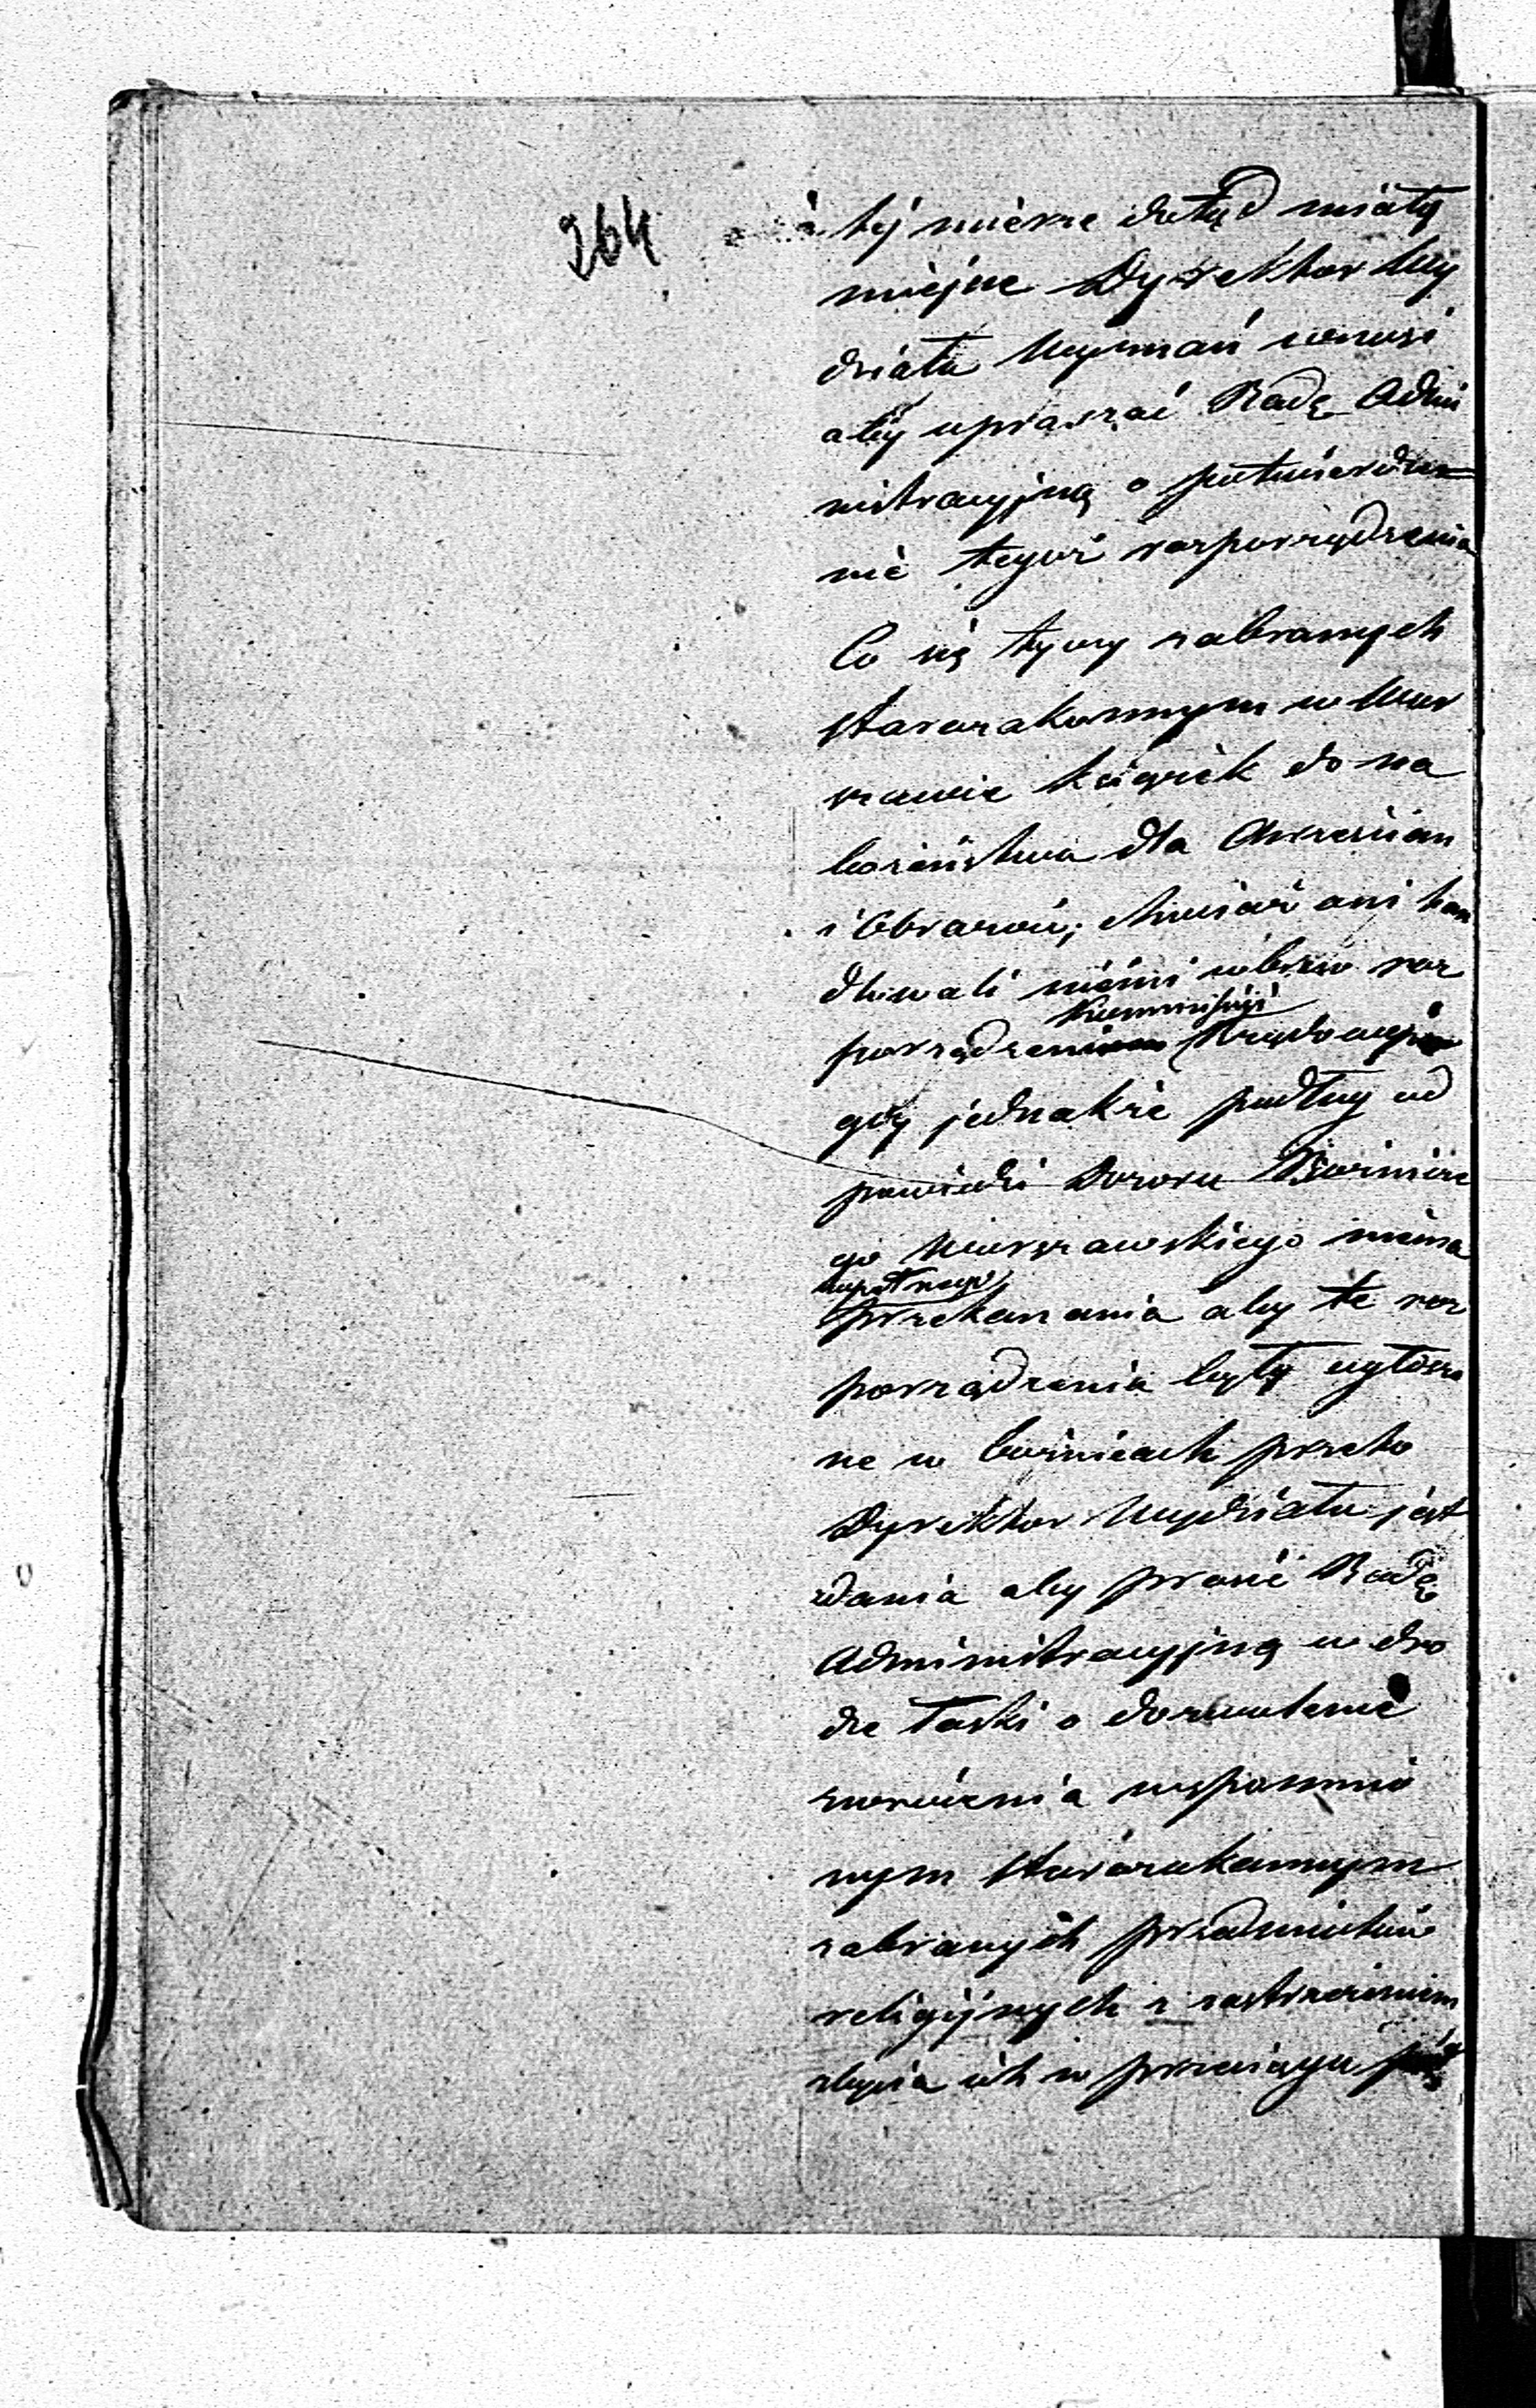 264
téj mierze dotąd miały
miejsce Dyrektor Wy
działu Wyznań wnosi
aby upraszać Radę Admi
nistracyjną o potwierdze
nie tegoż rozporządzenia
Co się tyczy zabranych
starozakonnym w War
szawie książek do na
bożeństwa dla Chrześcian
i Obrazów, chociaż oni han
dlowali niémi wbrew roz
Kommissyi
porządzeniom Rządowéj
gdy jednakże podług od
powiedzi Dozoru Bóżnicze
go Warszawskiego niéma
zupełnego
przekonania aby te roz
porządzenia były ogłoszo
ne w bóżnicach przeto
Dyrektor Wydziału jest
zdania aby prosić Radę
Administracyjną w dro
dze łaski o dozwolenie
zwrócenia wspomnio
nym starozakonnym
zabranych przedmiotów
religijnych z zastrzeżeniem
zbycia ich w przeciągu